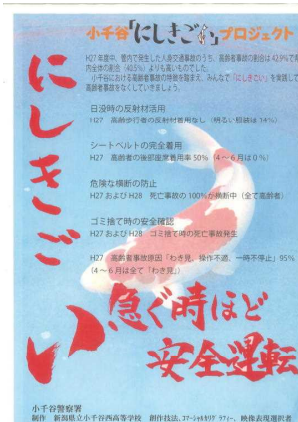 小千谷「にしきごい」プロジェクト
H27年度中、管内で発生した人身交通事故のうち、高齢者事故の割合は42.9%で
内全体の割合（40.5%）よりも高いものでした。
小千谷における高齢者事故の特徴を踏まえ、みんなで「にしきごい」を実践して
高齢者事故をなくしていきましょう。
にしきごい
日没時の反射材活用
H27　高齢歩行者の反射材着用なし（明るい服装は14%）
シートベルトの完全着用
H27　高齢者の後部座席着用率50%（4〜6月は0%）
危険な横断の防止
H27およびH28　死亡事故の100%が横断中（全て高齢者）
ゴミ捨て時の安全確認
H27およびH28　ゴミ捨て時の死亡事故発生
H27　高齢者事故原因「わき見、操作不適、一時不停止」95%
（4〜6月は全て「わき見」）
急ぐ時ほど
安全運転
小千谷警察署
制作　新潟県立小千谷西高等学校　創作技法、コマーシャルカリグラフィー、映像表現選択者